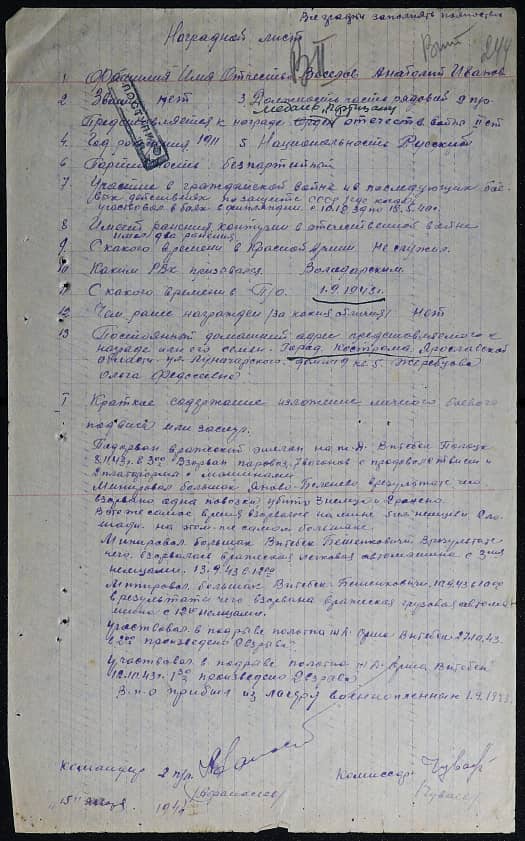 Все графы заполнять полностью
Наградной лист
244
1 Фамилия Имя Отчество Веселов Анатолий Иванов
2 Звание нет 3 Должность часть рядовой 2 про
Представляется к награде отечеств. война II ст
4. Год рождения 1911 5 Национальность Русский
6 Партийность: беспартийный
7 Участие в гражданской войне и в последующих бое
вых действиях по защите СССР (где когда)
участвовал в боях в Финляндии с
8 Имеет ранения контузии в отечественной войне
имеет два ранения
9 С какого времени в Красной Армии Не служил.
10 Каким РВК призывался Володарским.
11 С какого времени в П/о. 1.9.1943г.
12 Чем ранее награжден (за какие отличия) нет
13 Постоянный домашний адрес представляемого к
награде или его семьи. Город Кострома, Ярославской
области ул. Луначарского дом 9 кв. 5. Жеребцова
Ольга Федосеевна
I Краткое содержание изложение личного боевого
подвига или заслуг.
Подорвал вражеский эшелон на ж.д. Витебск Полоцк
8.11.43г. в 3 00 Взорван паровоз, 7 вагонов с продовольствием и
платформа с машинами
Минировал большак Яново Бешенко, в результате чего
взорвано одна повозка убиты 3 немца и
В тоже самое время взорвалось на мине 6 немцев и
лошади на этом-же самом большаке.
Минировал большак Витебск Бешенковичи, в результате
чего взорвалась вражеская легковая автомашина с 3мя
немцами. 13.9.43 г.
Минировал большак Витебск Бешенковичи,
в результате чего взорвана вражеская грузовая автома-
шина с 12ю немцами.
участвовал в подрыве полотна ж.д. Орша Витебск 27.10.43.
в 2 00 произведено взрыва
участвовал в подрыве полотна ж.д. Орша Витебск
12.10.43г. произведено взрыва
В п-о прибыл из лагеря военнопленных 1.9.1943.
Командир 2 пр. Комиссар
(Афанасьев)
"15" января 194